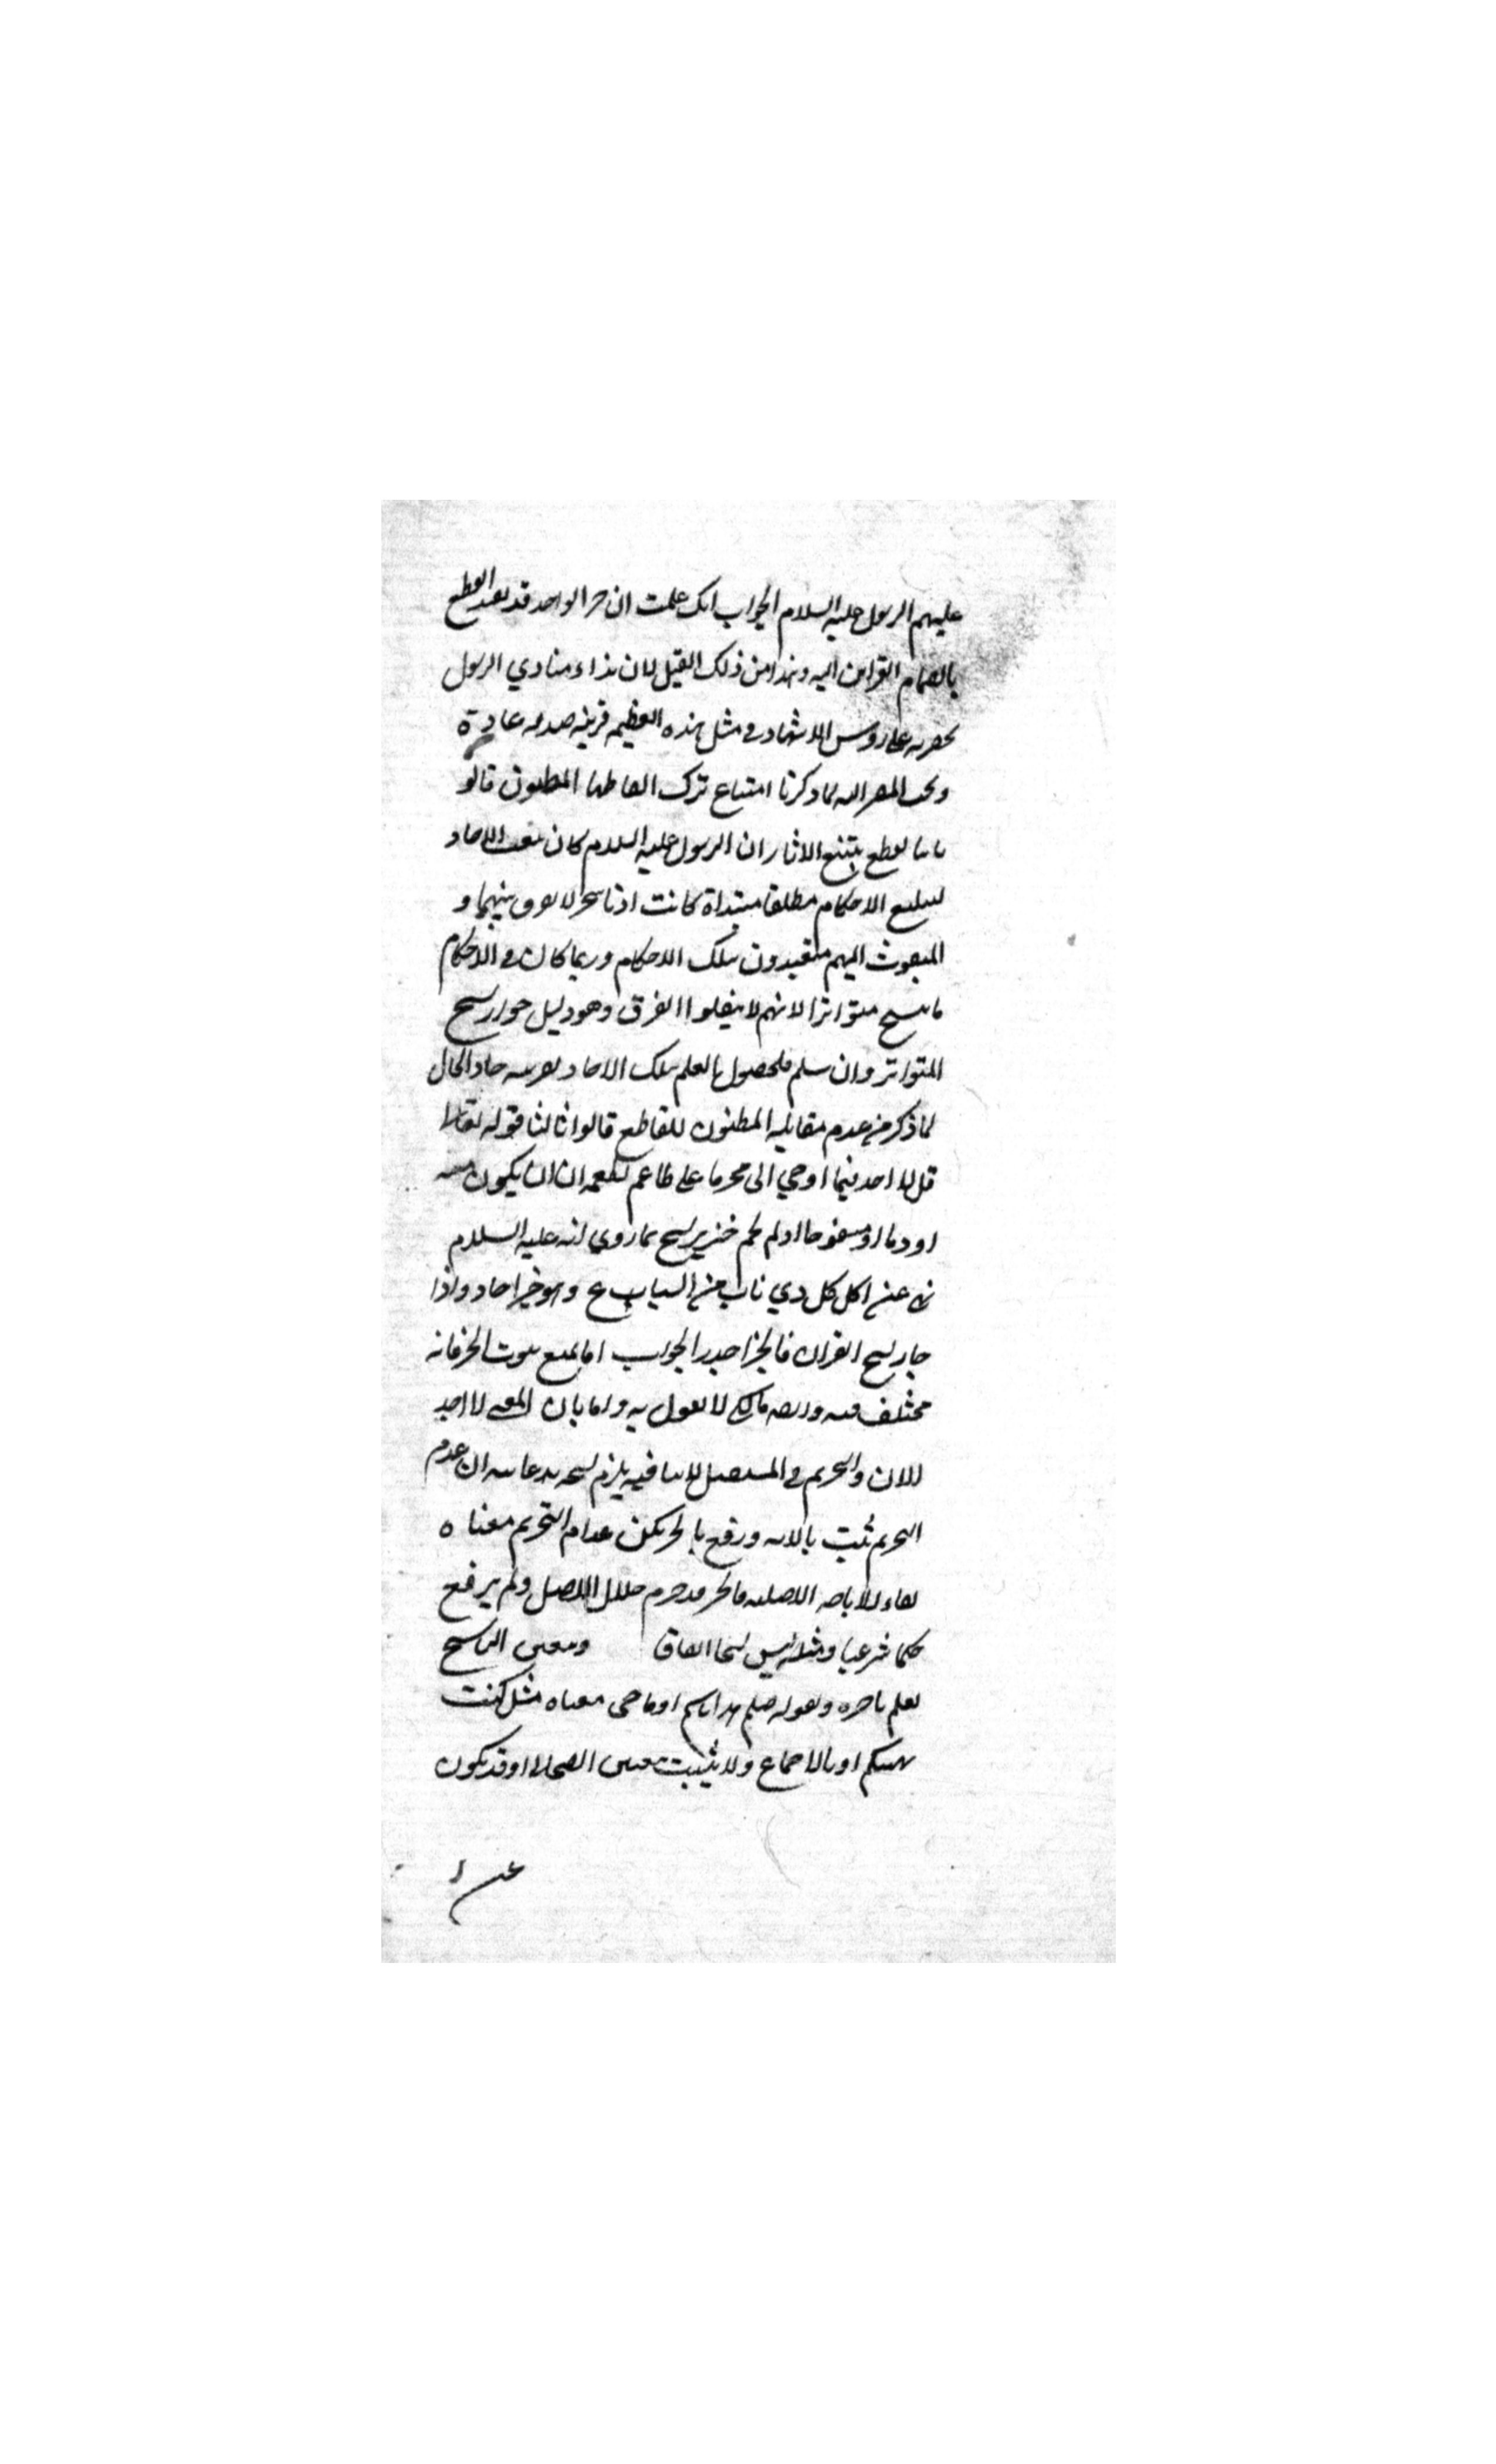 عليهم الرسول عليه السلام الجواب انك علمت ان خبر الواحد قد يفيد القطع
بانضمام القراين اليه وهذا من ذلك القبيل لان نداء منادي الرسول
بحضرته على روس الاشهاد في مثل هذه العظيمة قرينة صدقه عادة
المصير اليه لما ذكرنا امتناع ترك القاطع المظنون قالوا
ثانيا نقطع بتتبع الاثار ان الرسول عليه السلام كان يبعث الاحاد
لتبليغ الاحكام مطلقا مبتداة كانت او ناسخة لا يفرق بينهما و
المبعوث اليهم متعبدون بتلك الاحكام وربما كان في الاحكام
ما ينسخ متواترا لانهم لا ينقلوا الفرق وهو دليل جواز نسخ
المتواتر وان سلم فلحصول العلم بتلك الاحاد بقرينة الحال
لما ذكر من عدم مقابلة المظنون للقاطع قالوا ثالثا قوله تعالى
قل لا اجد فيما اوحي الى محرما على طاعم يطعمه الا ان يكون ميتة
او دما او مسفوحا او لم لحم خنزير نسخ بما روي انه عليه السلام
نهى عن اكل كل دي ناب من السباع وهو خبر احاد واذا
جاز نسخ القران فالخبر اجدر الجواب اما بمنع ثبوت الخبر فانه
مختلف فيه مالك لا يقول به واما بان المعنى لا اجد
الان والتحريم في المستقبل لا ينافيه يلزم نسخه غايته ان عدم
التحريم ثبت بالاية ورفع بالخبر لكن عدام التحريم معناه
بقاء للاباحة الاصلية فالخبر قد حرم حلال الاصل ولم يرفع
حكما شرعيا ومثله ليس نسخا اتفاق ومعين الناسخ
يعلم تاخره وبقوله صلعم هذا ناسخ او ما في معناه مثل كنت
نهيتكم او بالاجماع ولا يثبت بتعيين الصحابي اوقد يكون